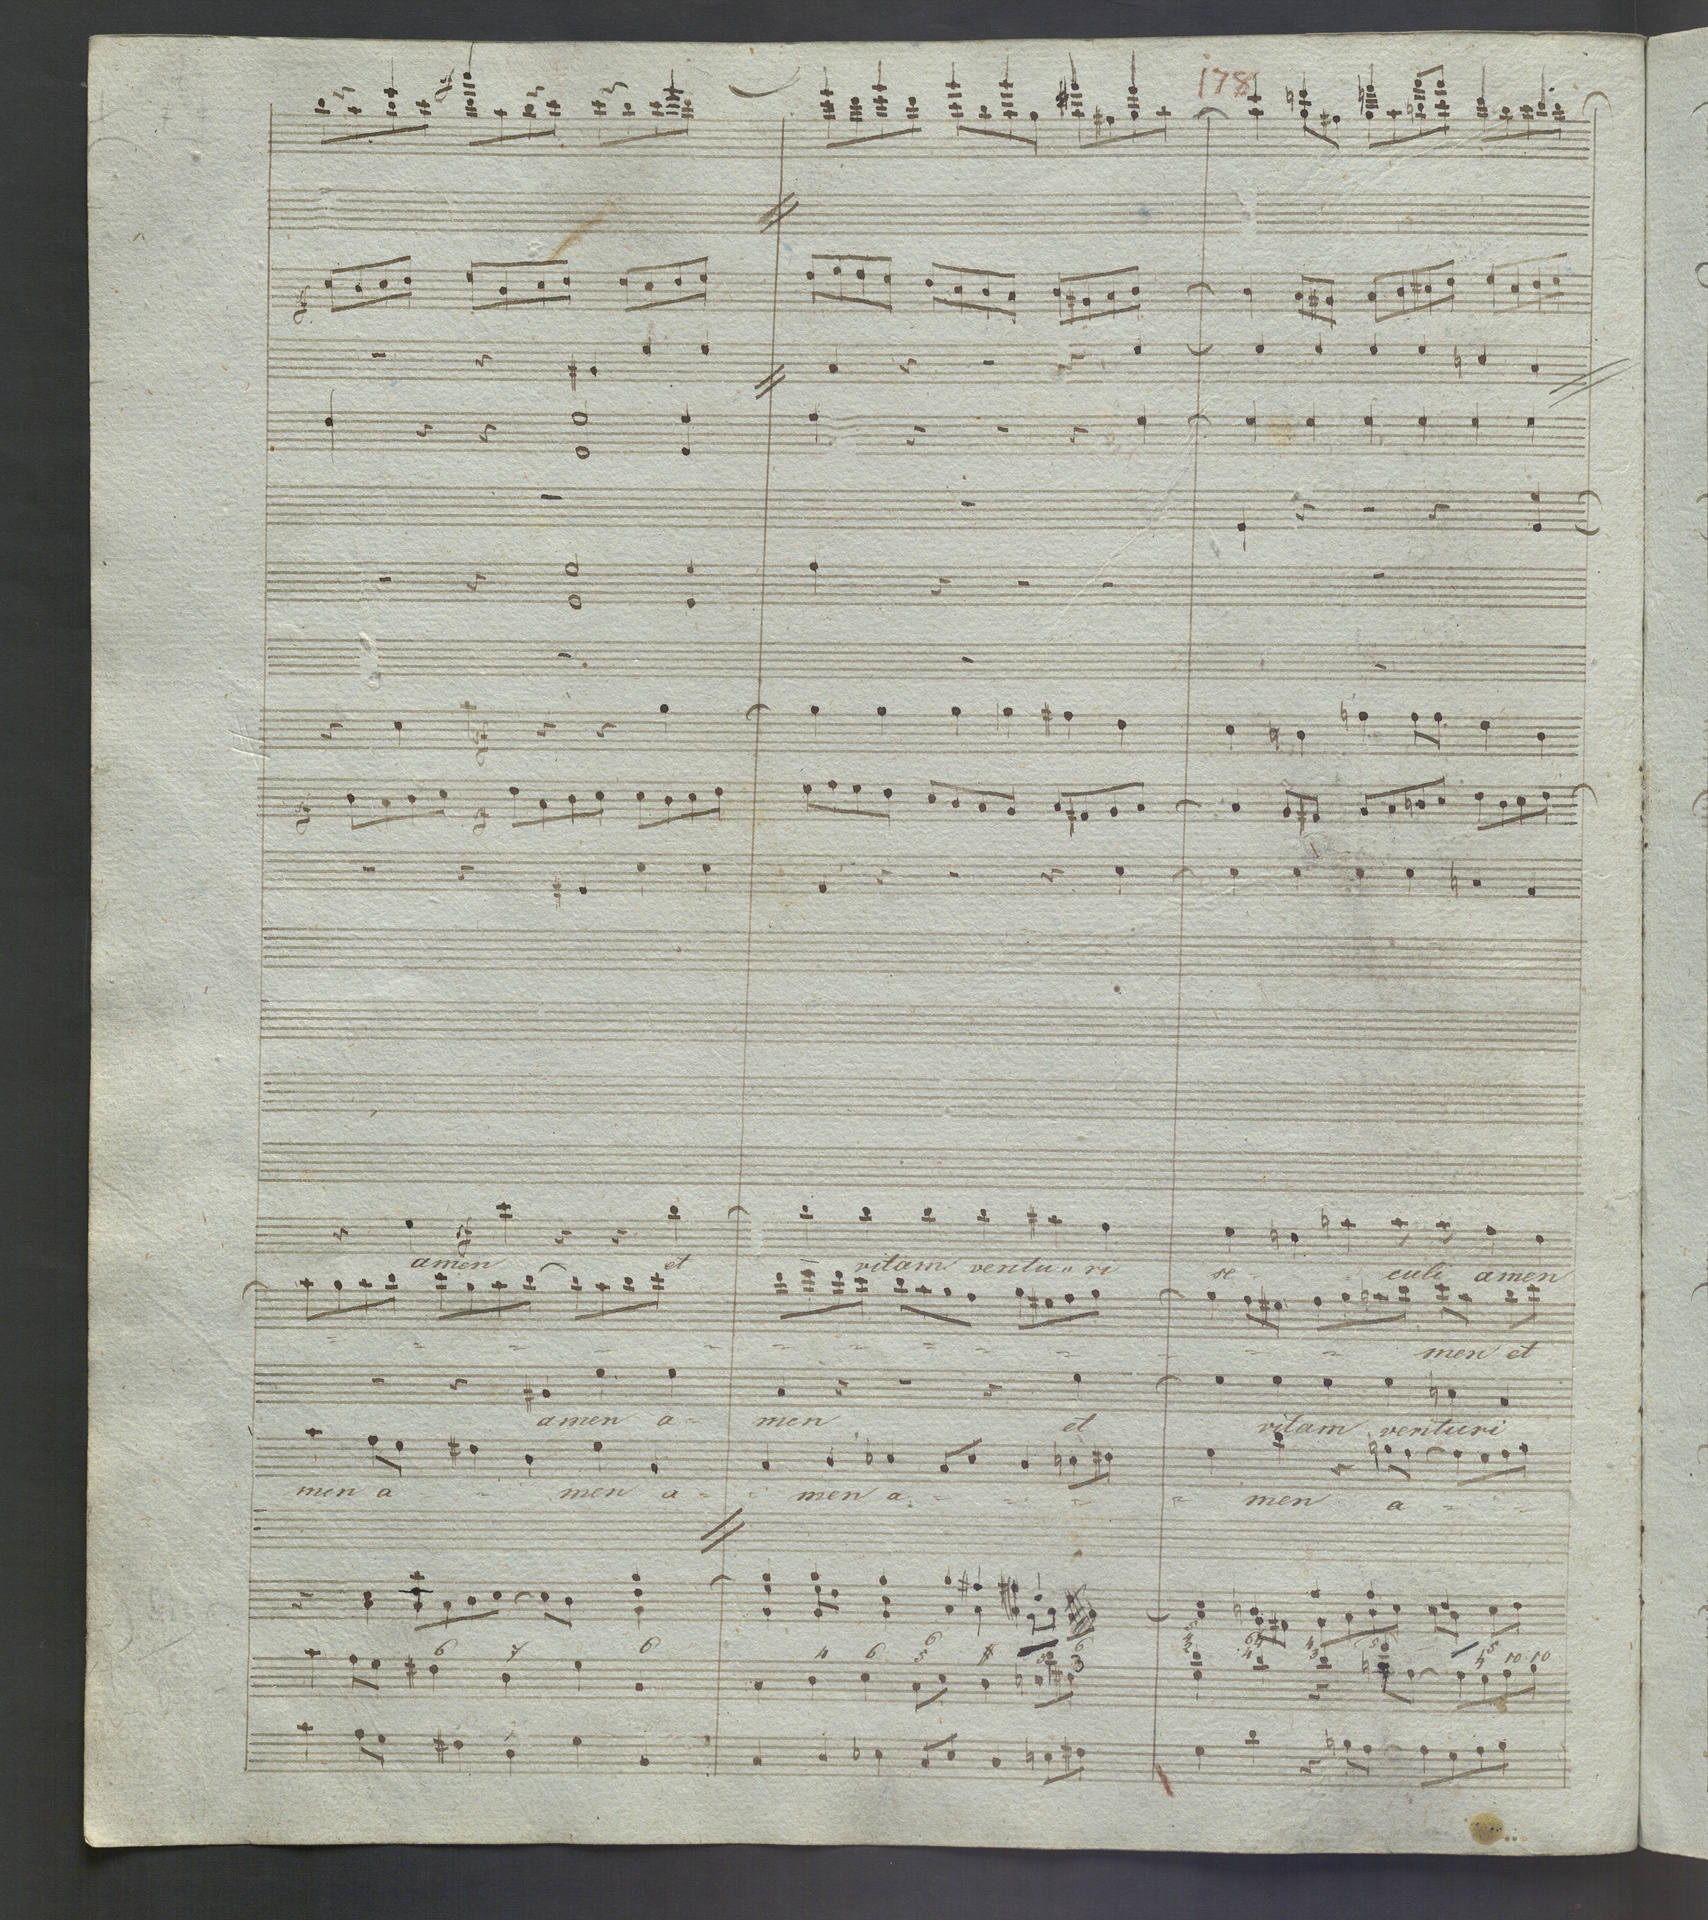 178
amen et vitam ventu-ri se - culi amen
men et
amen a- men et vitam venturi
men a - - men a - - men a - - men a - -
6 7 6 4 6 6